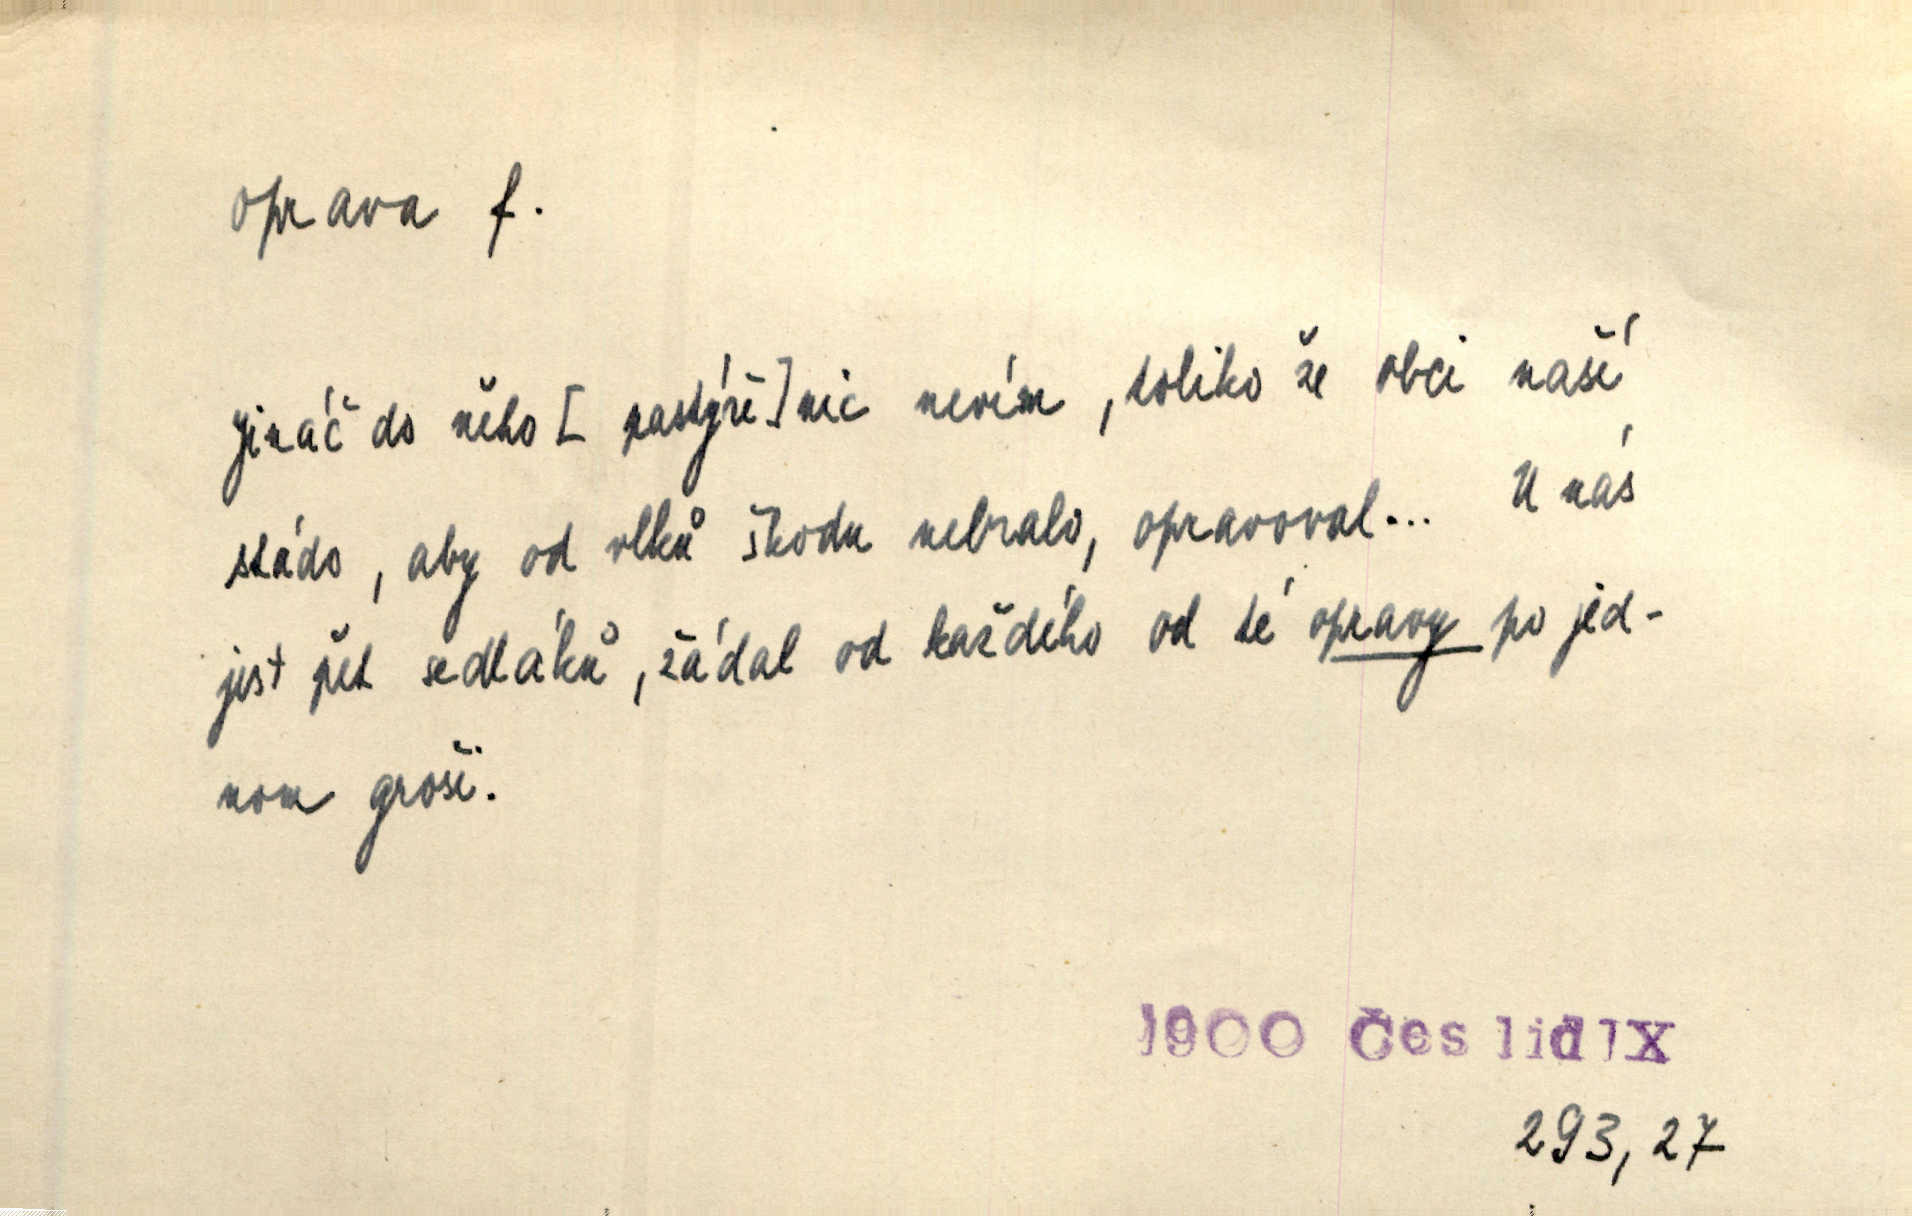 oprava f.
jináč do něho [ pastýře] nic nevím, toliko že obci naší
stádo, aby od vlků škodu nebralo, opravoval... U nás
jest pět sedláků, žádal od každého od té opravy po jed-
nom groši.
1900 Čes lid IX
293, 27